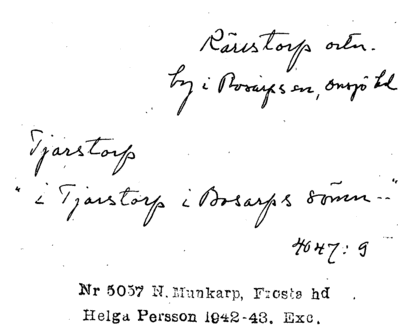 Kärrstorp ortn.
by i Bosarps sn, Onsjö hd
Tjarstorp
"i Tjarstorp i Bosarps sömn--"
4047: 9
Nr 5037 N. Munkarp, Frosta hd
Helga Persson 1942-43. Exc.